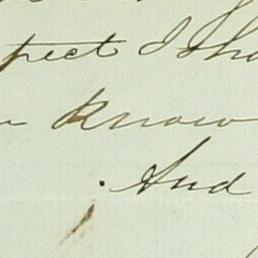 pect I sha
know
And